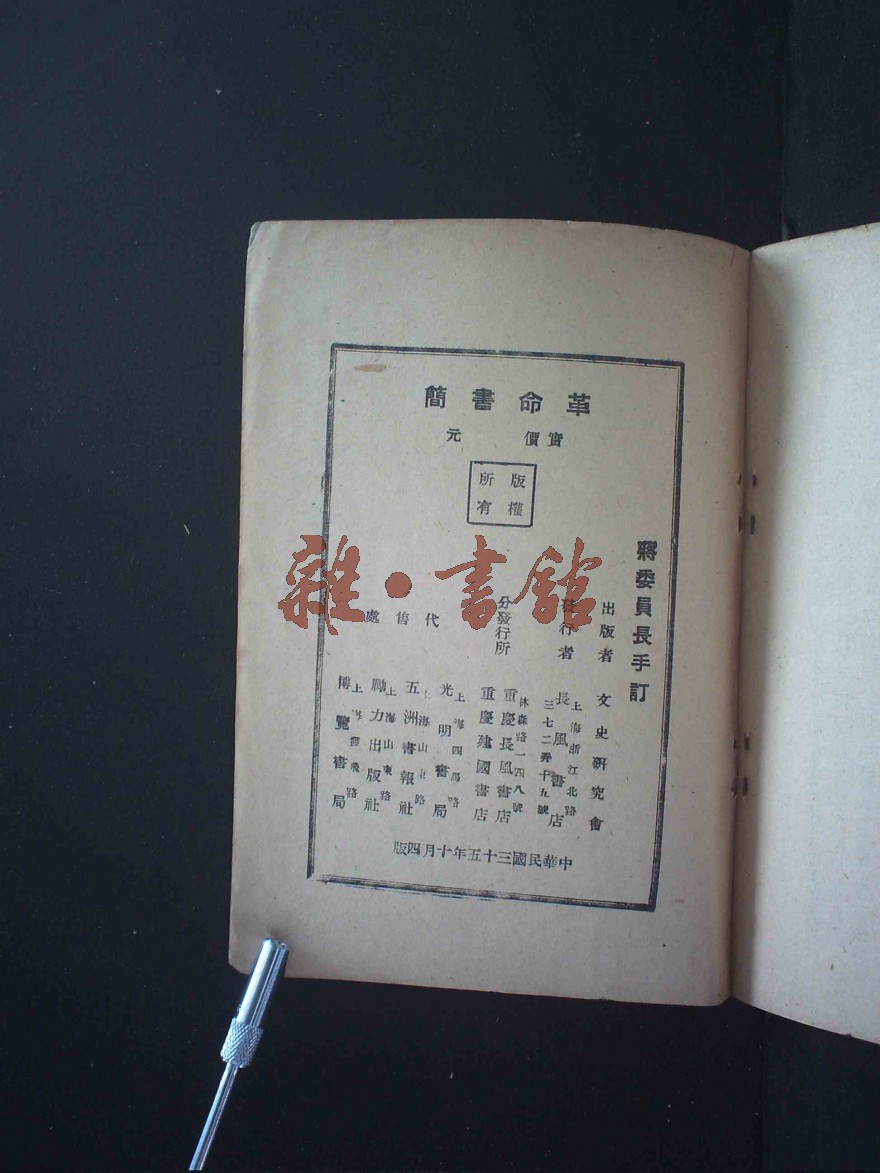 革命書簡
實價　　元
版權
所有
蔣委員長手訂
出版者　文史研究會
發行者　長風書店
上海浙江北路
三七二弄十五號
分發行所　重慶長風書店
林森路一四八號
重慶建國書店
代售處　光明書局
上海四馬路
五洲書報社
上海山東路
勵力出版社
上海山東路
博覽書局
上海霞飛路
中華民國三十五年十月四版
雜·書館